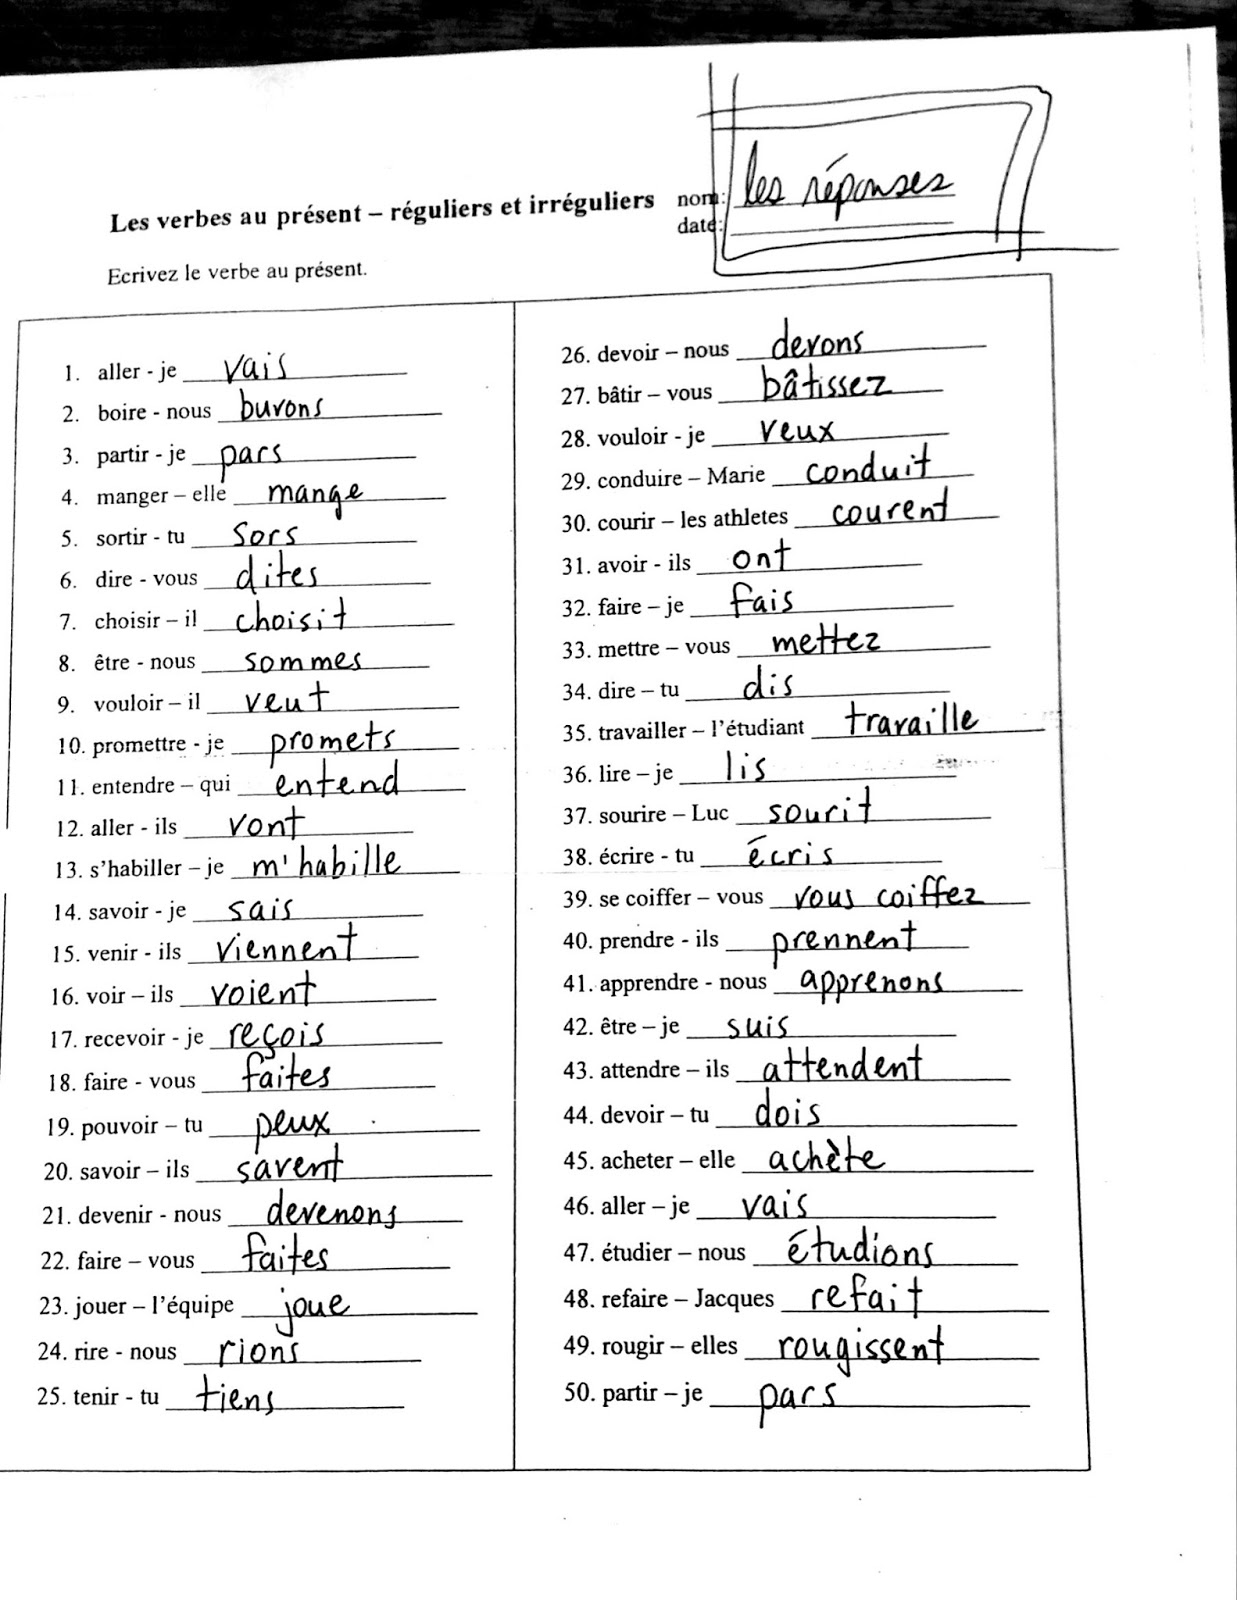 les réponses
Les verbes au présent – réguliers et irréguliers nom:
date:
Ecrivez le verbe au présent.
1. aller - je vais
2. boire - nous buvons
3. partir - je pars
4. manger – elle mange
5. sortir - tu sors
6. dire - vous dites
7. choisir – il choisit
8. être - nous sommes
9. vouloir – il veut
10. promettre - je promets
11. entendre – qui entend
12. aller - ils vont
13. s'habiller – je m'habille
14. savoir - je sais
15. venir - ils viennent
16. voir – ils voient
17. recevoir - je reçois
18. faire - vous faites
19. pouvoir – tu peux
20. savoir – ils savent
21. devenir - nous devenons
22. faire – vous faites
23. jouer – l'équipe joue
24. rire - nous rions
25. tenir - tu tiens
26. devoir – nous devons
27. bâtir – vous bâtissez
28. vouloir - je veux
29. conduire – Marie conduit
30. courir – les athletes courent
31. avoir - ils ont
32. faire – je fais
33. mettre – vous mettez
34. dire – tu dis
35. travailler – l'étudiant travaille
36. lire – je lis
37. sourire – Luc sourit
38. écrire - tu écris
39. se coiffer – vous vous coiffez
40. prendre - ils prennent
41. apprendre - nous apprenons
42. être – je suis
43. attendre – ils attendent
44. devoir – tu dois
45. acheter – elle achète
46. aller – je vais
47. étudier – nous étudions
48. refaire – Jacques refait
49. rougir – elles rougissent
50. partir – je pars